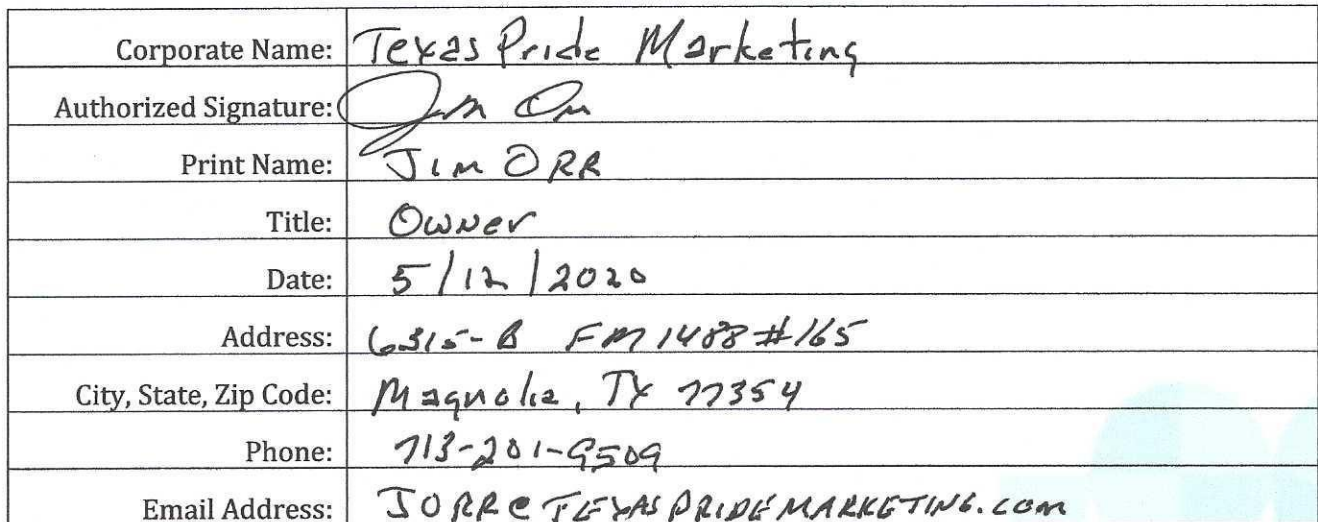 Corporate Name: Texas Pride Marketing
Authorized Signature: Jim Orr
Print Name: Jim ORR
Title: Owner
Date: 5/12/2020
Address: 6315-B FM 1488 #165
City, State, Zip Code: Magnolia, TX 77354
Phone: 713-201-9509
Email Address: JORR@TEXASPRIDEMARKETING.com